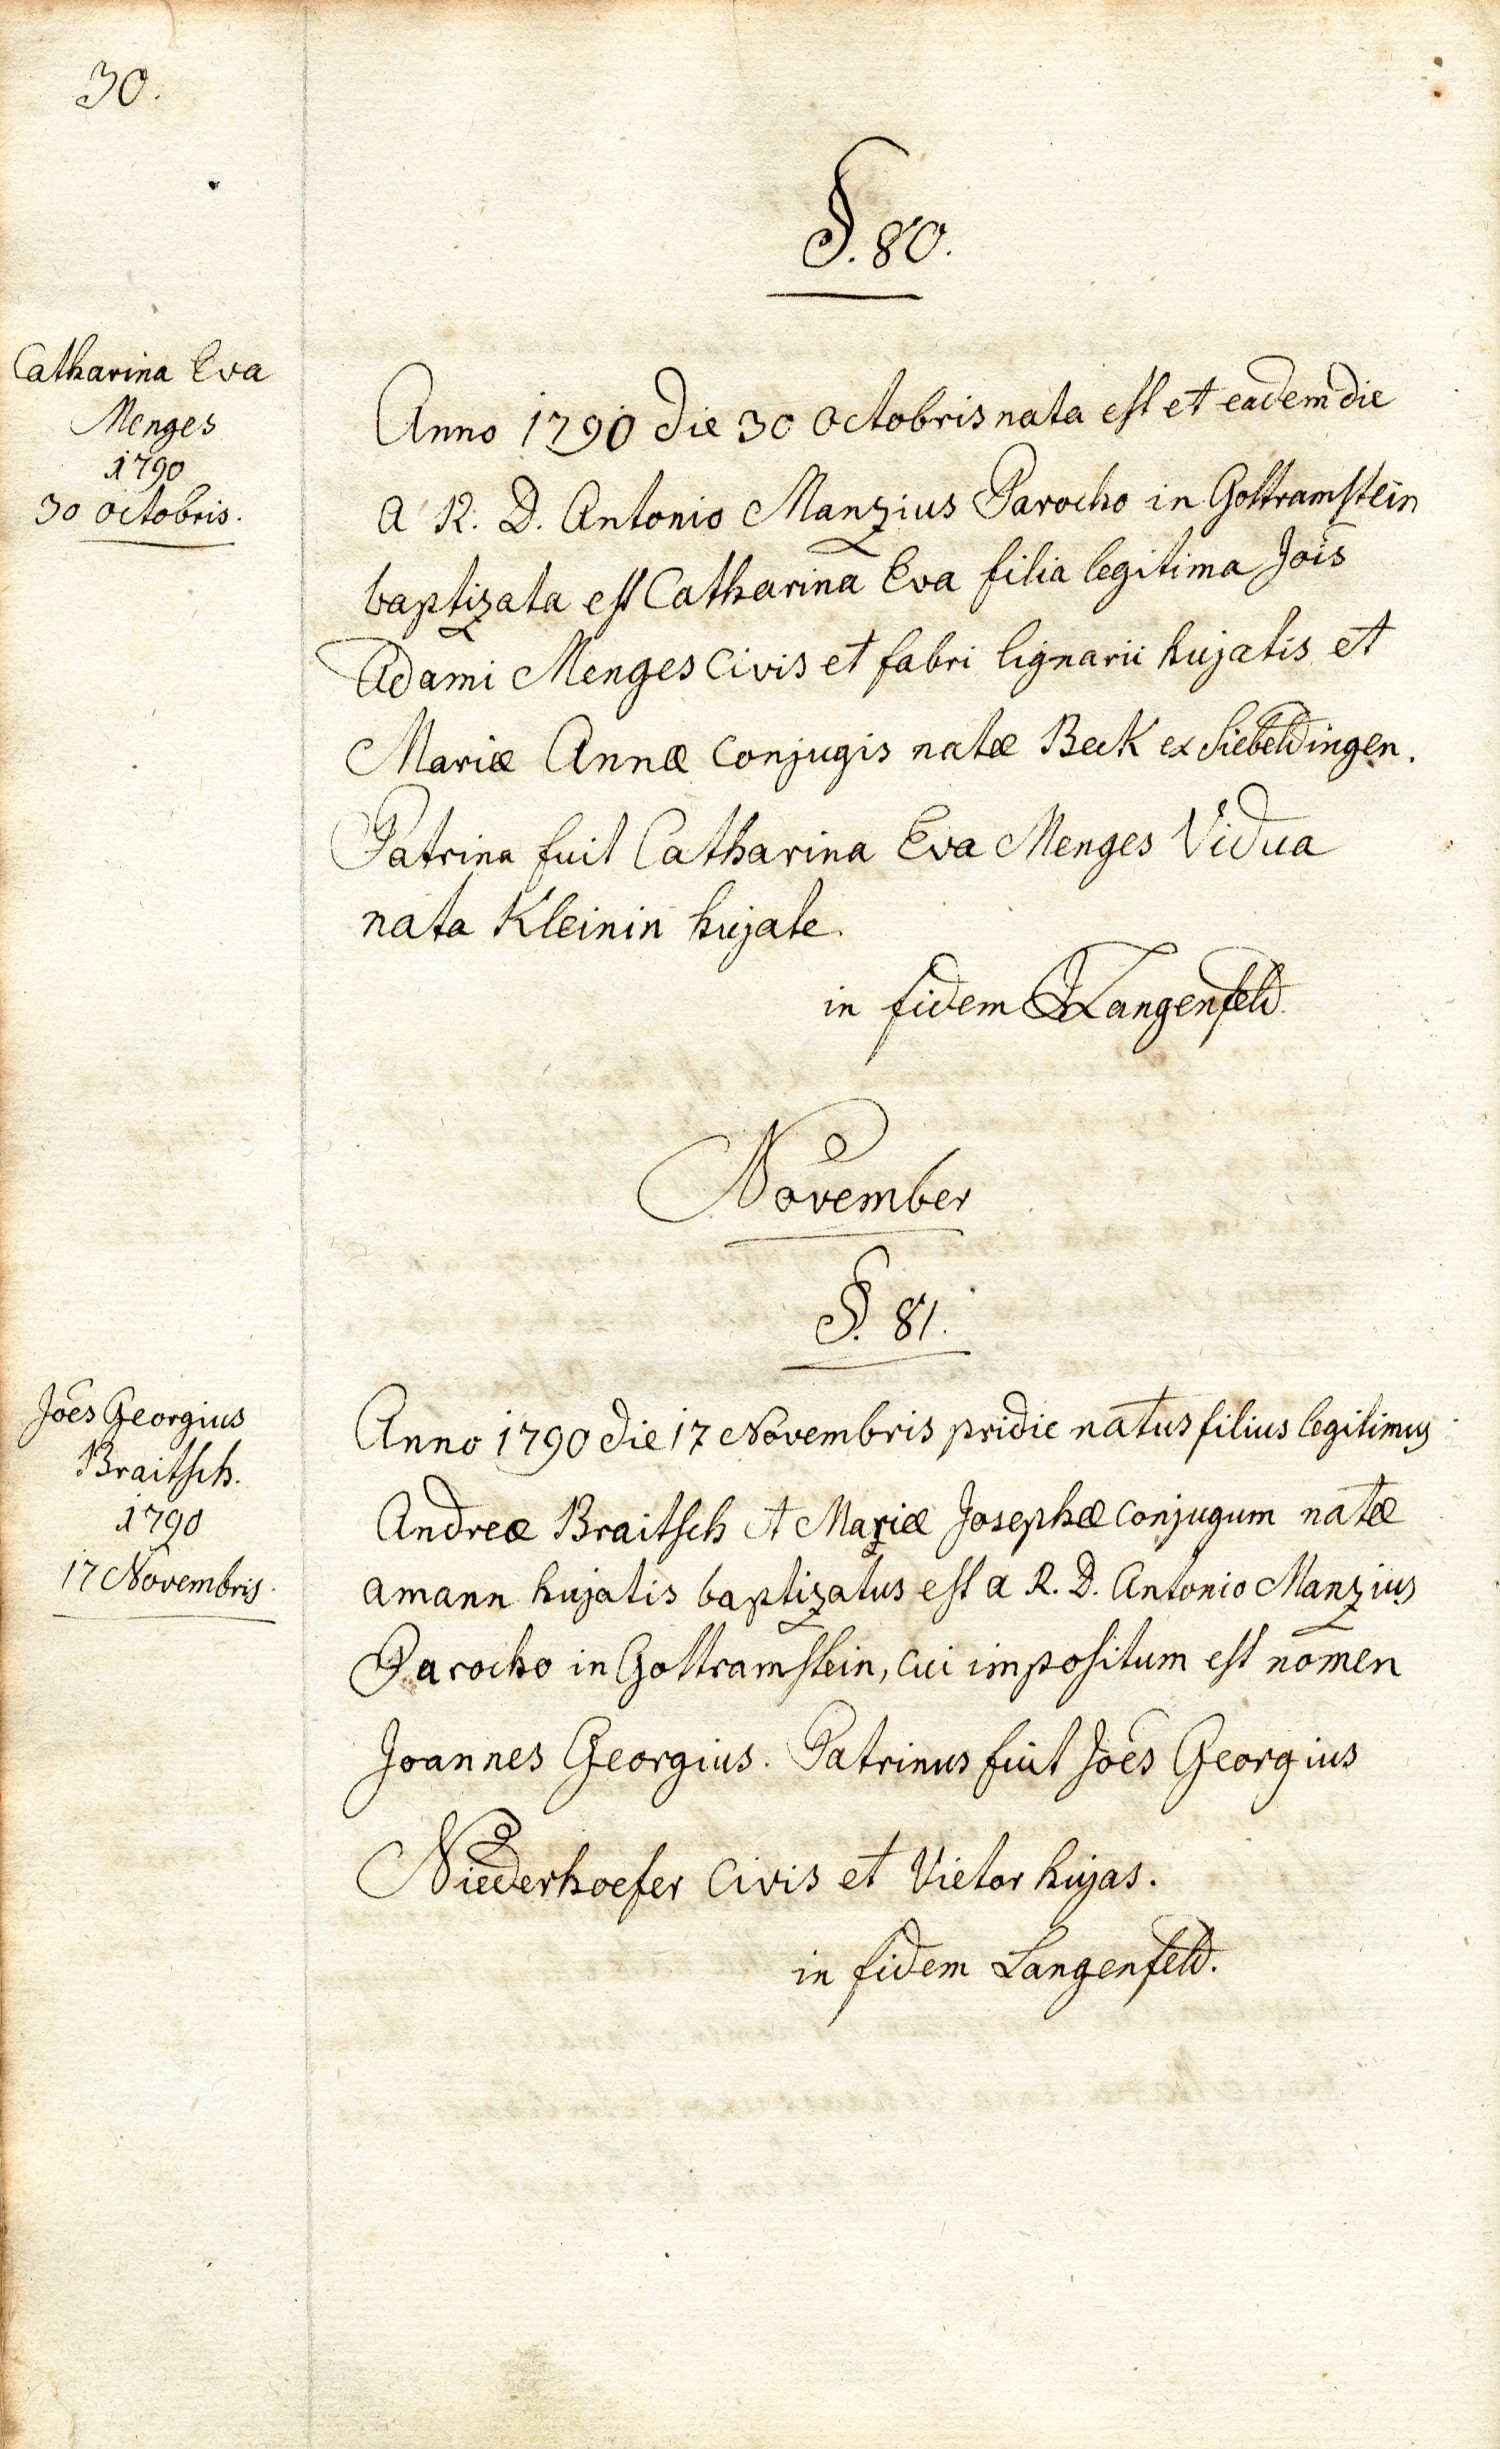 30.
§. 80.
Catharina Eva
Menges
1790
30 octobris.
Anno 1790 die 30 octobris nata est et eadem die
a R. D. Antonio Manzius Parocho in Gottramstein
baptizata est Catharina Eva filia legitima Jois̄
Adami Menges civis et fabri lignarii hujatis et
Mariæ Annæ conjugis natæ Beck ex Siebeldingen.
Patrina fuit Catharina Eva Menges Vidua
nata Kleinin hujate.
in fidem Langenfeld
November
§. 81.
Joēs Georgius
Braitsch.
1790
17 Novembris.
Anno 1790 die 17 Novembris pridie natus filius legitimus
Andreæ Braitsch et Mariæ Josephæ conjugum natæ
amann hujatis baptizatus est a R. D. Antonio Manzius
Parocho in Gottramstein, cui impositum est nomen
Joannes Georgius. Patrinus fuit Joēs Georgius
Niederhoefer civis et Vietor hujas.
in fidem Langenfeld.